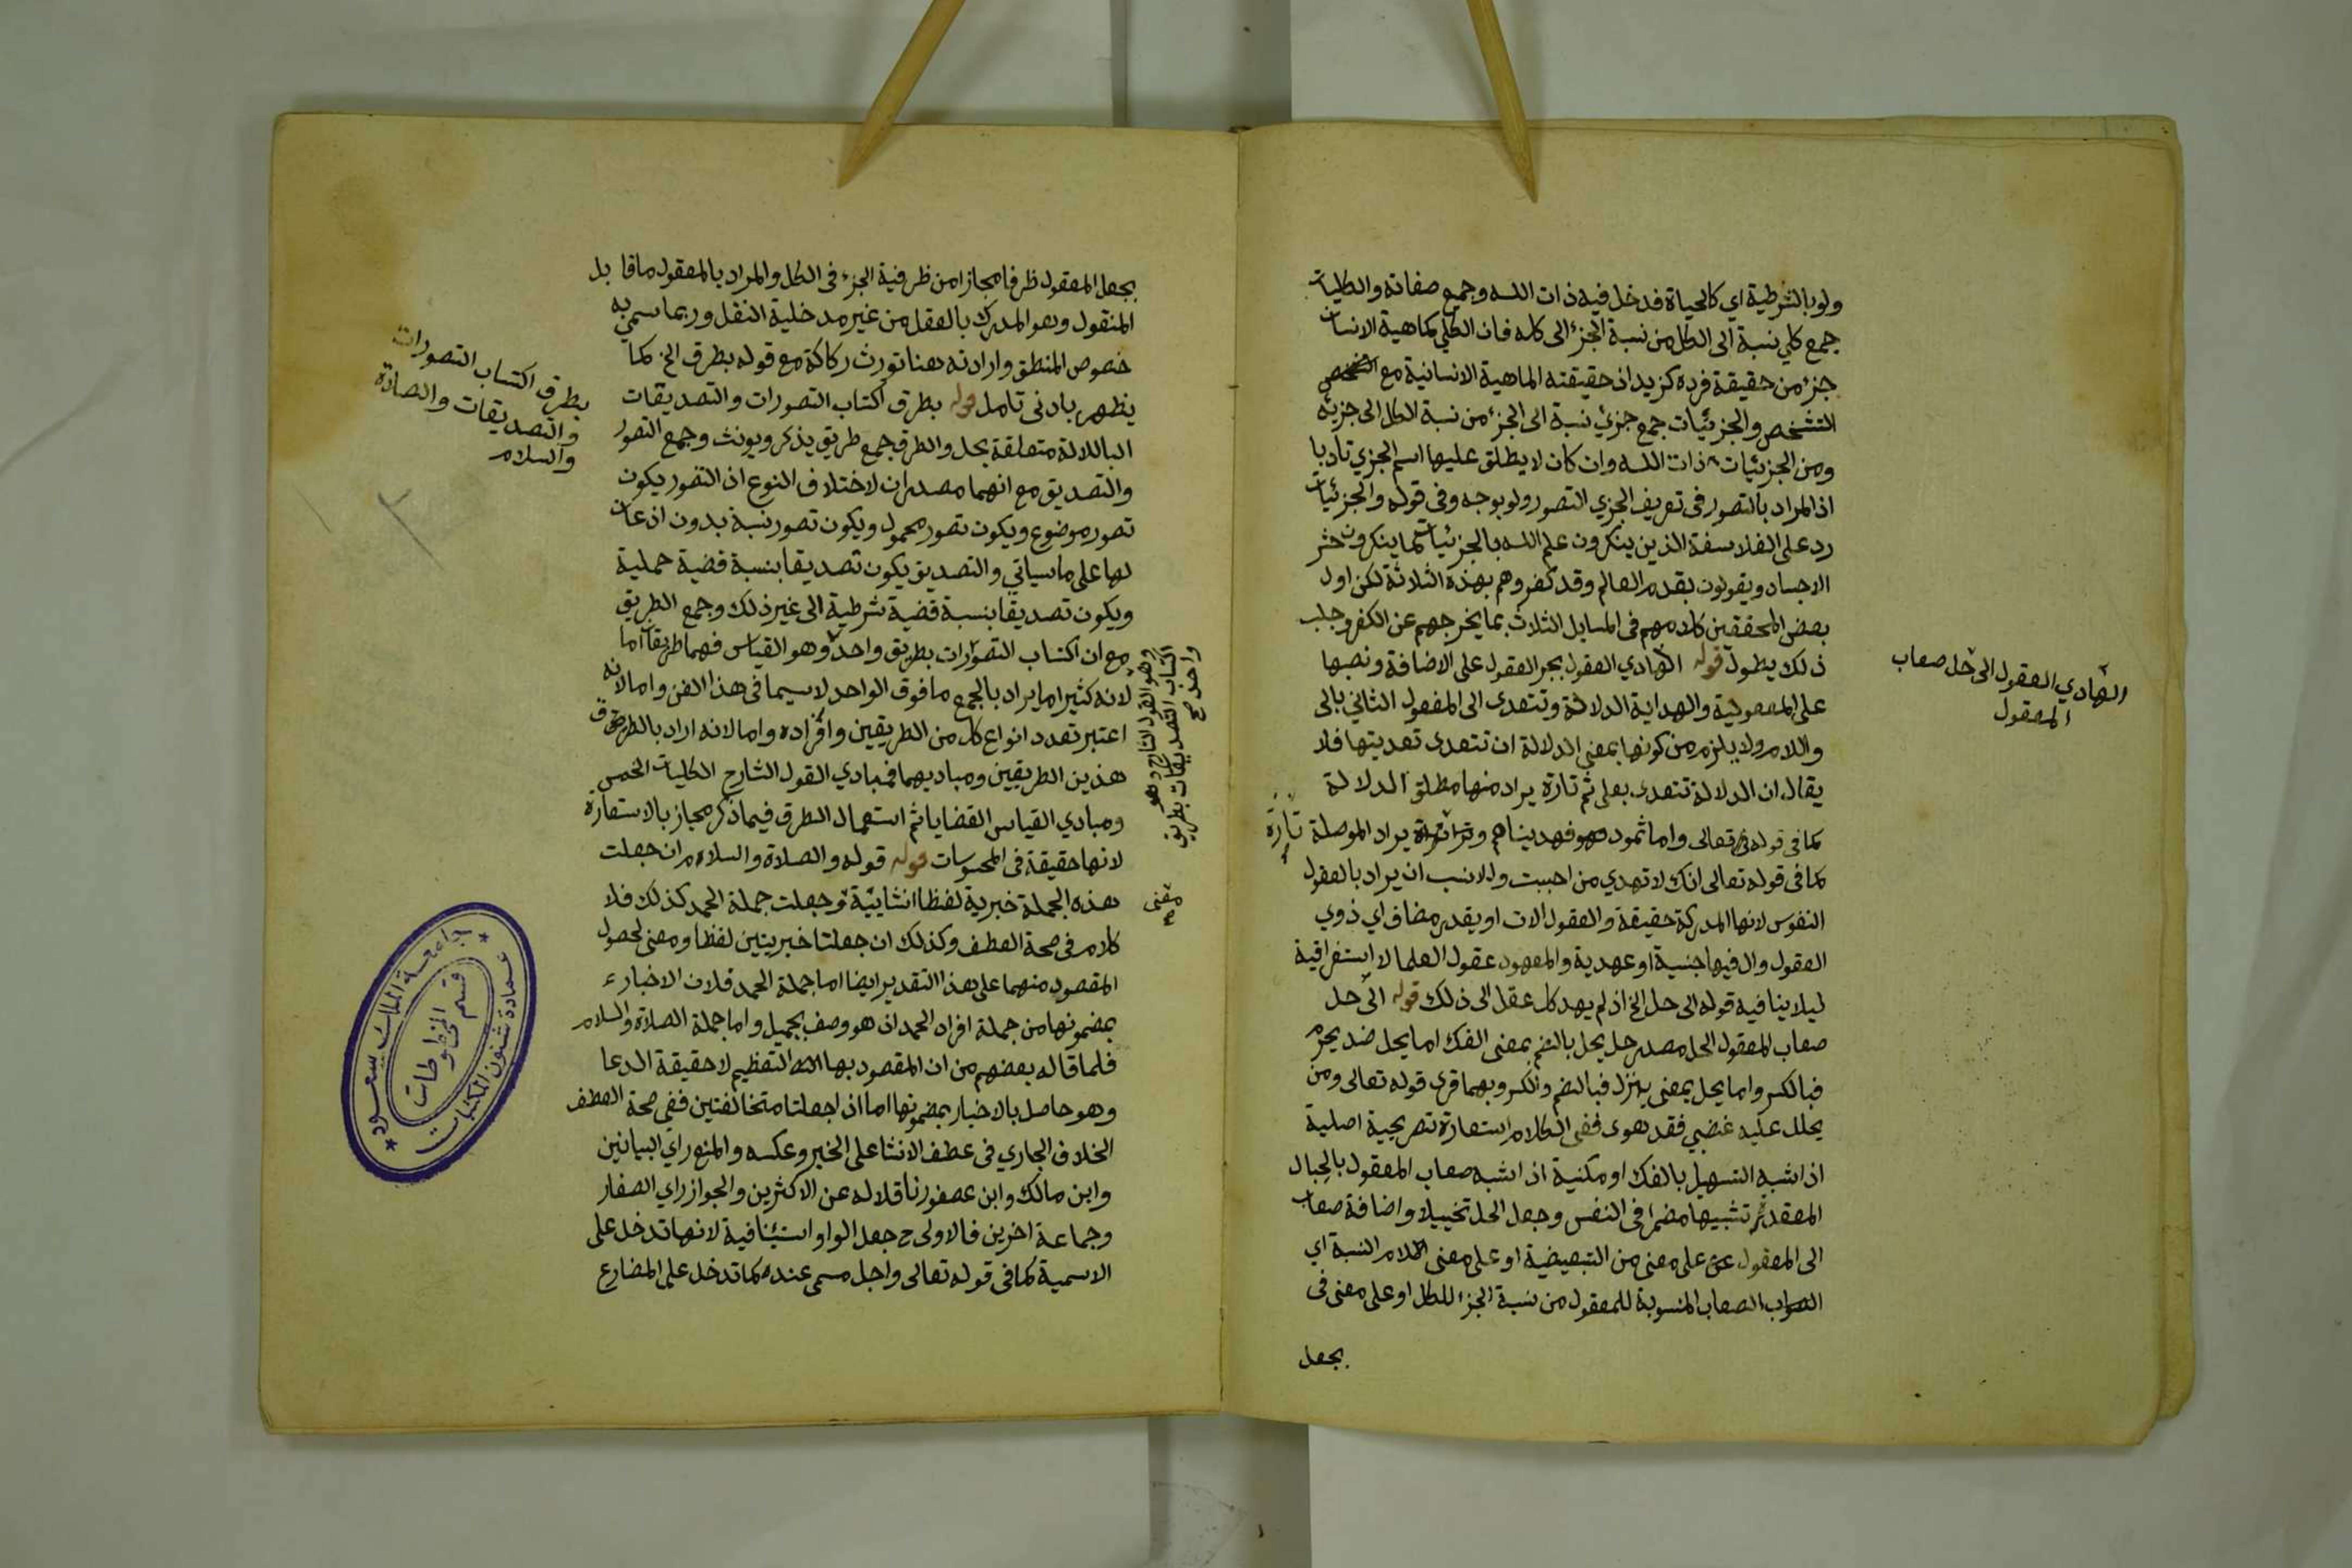 ولو بالشرطية اي كالحياة فدخل فيه ذات الله وجميع صفاته والكليات
جمع كلي نسبة الى الكل من نسبة الجزء الى كله فان الكلي كماهية الانسان
جزء من حقيقة فرده كزيد اذ حقيقته الماهية الانسانية مع
التشخص والجزئيات جمع جزئي نسبة الى الجزء من نسبة الكل الى جزئه
ومن الجزئيات ذات الله وان كان لا يطلق عليها اسم الجزي تادبا
اذ المراد بالتصور في تعريف الجزي التصور ولو بوجه وفي قوله والجزئيات
رد على الفلاسفة الذين ينكرون علم الله بالجزئيات كما ينكرون حشر
الاجساد ويقولون بقدم العالم وقد كفروهم بهذه الثلاثة لكن اول
بعض المحققين كلامهم في المسايل الثلاث بما يخرجهم عن الكفر وجلب
ذلك يطول قوله الهادي العقول بجر العقول على الاضافة ونصبها
على المفعولية والهداية الدلالة وتتعدى الى المفعول الثاني بالى
واللام ولا يلزم من كونها بمعنى الدلالة ان تتعدى تعديتها فلا
يقال ان الدلالة تتعدى بعلى ثم تارة يراد منها مطلق الدلالة
كما في قوله تعالى واما ثمود فهديناهم وتارة يراد الموصلة
تارة
كما في قوله تعالى انك لا تهدي من احببت والانسب ان يراد بالعقول
النفوس لانها المدركة حقيقة والعقول الات او يقدر مضاف اي ذوي
العقول وال فيها جنسية او عهدية والمعهود عقول العلما لا استغراقية
ليلا ينافيه قوله الى حل الخ اذ لم يهد كل عقل الى ذلك قوله الى حل
صعاب المعقول الحل مصدر حل يحل بالضم بمعنى الفك اما يحل ضد يحرم
فبالكسر واما يحل بمعنى ينزل فبالضم والكسر وبهما قرى قوله تعالى ومن
يحلل عليه غضبي فقد هوى ففي الكلام استعارة تصريحية اصلية
اذا شبه التسهيل بالفك او مكنية اذا شبه صعاب المعقول بالحبال
المعقدة تشبيها مضمرا في النفس وجعل الحل تخييلا واضافة صعاب
الى المعقول على معنى من التبعيضية او على معنى اللام النسبة اي
الصعاب المنسوبة للمعقول من نسبة الجزء للكل او على معنى في
بجعل
الهادي العقول الى حل صعاب
المعقول
بجعل المعقول ظرفا مجازا من ظرفية الجزء في الكل والمراد بالمعقول ما قابل
المنقول وهو المدرك بالعقل من غير مدخلية النقل وربما سمي به
خصوص المنطق وارادته هنا تورث ركاكة مع قوله بطرق الخ كما
يظهر بادنى تامل قوله بطرق اكتساب التصورات والتصديقات
البا للالة متعلقة بحل والطرق جمع طريق يذكر ويونث وجمع التصور
والتصديق مع انهما مصدران لاختلاف النوع اذ التصور يكون
تصور موضوع ويكون تصور محمول ويكون تصور نسبة بدون اذعان
لها على ما سياتي والتصديق يكون تصديقا بنسبة قضية حملية
ويكون تصديقا بنسبة قضية شرطية الى غير ذلك وجمع الطريق
مع ان اكتساب التصورات بطريق واحد وهو القياس فهما طريقا اما
لانه كثيرا ما يراد بالجمع ما فوق الواحد لا سيما في هذا الفن واما لانه
اعتبر تعدد انواع كل من الطريقين وافراده واما لانه اراد بالطرق
هذين الطريقين ومباديهما فمبادي القول الشارح الكليات الخمس
ومبادي القياس القضايا ثم استعمال الطرق فيما ذكر مجاز بالاستعارة
لانها حقيقة في المحسوسات قوله قوله والصلاة والسلام ان جعلت
هذه الجملة خبرية لفظا انشائية وجعلت جملة الحمد كذلك فلا
كلام في صحة العطف وكذلك ان جعلتا خبريتين لفظا ومعنى لحصول
المقصود منهما على هذا التقدير ايضا اما جملة الحمد فلان الاخبار
بمضمونها من جملة افراد الحمد اذ هو وصف بجميل واما جملة الصلاة والسلام
فلما قاله بعضهم من ان المقصود بها التعظيم لا حقيقة الدعا
وهو حاصل بالاخبار بمضمونها اما اذا جعلتا متخالفتين ففي صحة العطف
الخلاف الجاري في عطف الانشا على الخبر وعكسه والمنع راي البيانين
وابن مالك وابن عصفور ناقلا له عن الاكثرين والجواز راي الصفار
وجماعة اخرين فالاولى ح جعل الواو استئنافية لانها تدخل على
الاسمية كما في قوله تعالى واجل مسمى عنده كما تدخل على المضارع
وهو القول الشارح وهو
اكتساب التصديقات بطريق
واحد صح
معنى
بطرق اكتساب التصورات
والتصديقات والصلاة
والسلام
جامعة الملك سعود
قسم المخطوطات
عمادة شئون المكتبات